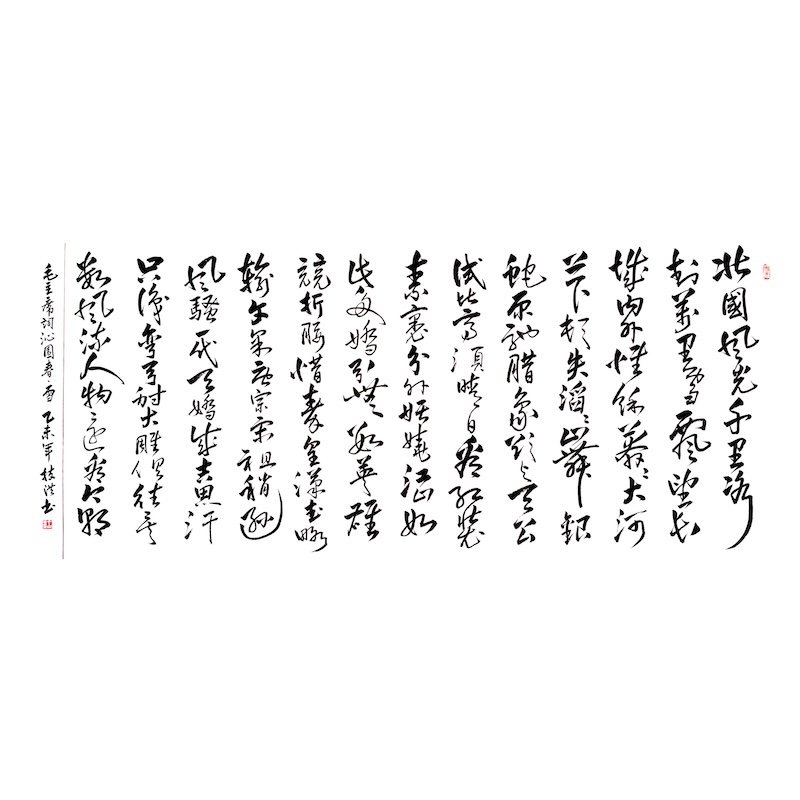 北國風光千里冰
封萬里雪飄望長
城內外惟餘莽莽大河
上下頓失滔滔山舞銀
蛇原馳腊象欲與天公
試比高須晴日看紅裝
素裹分外妖嬈江山如
此多嬌引無數英雄
競折腰惜秦皇漢武略
輸文采唐宗宋祖稍遜
風騷一代天嬌成吉思汗
只識彎弓射大雕俱往矣
數風流人物還看今朝
毛主席詞沁園春雪 乙未年枝洪書